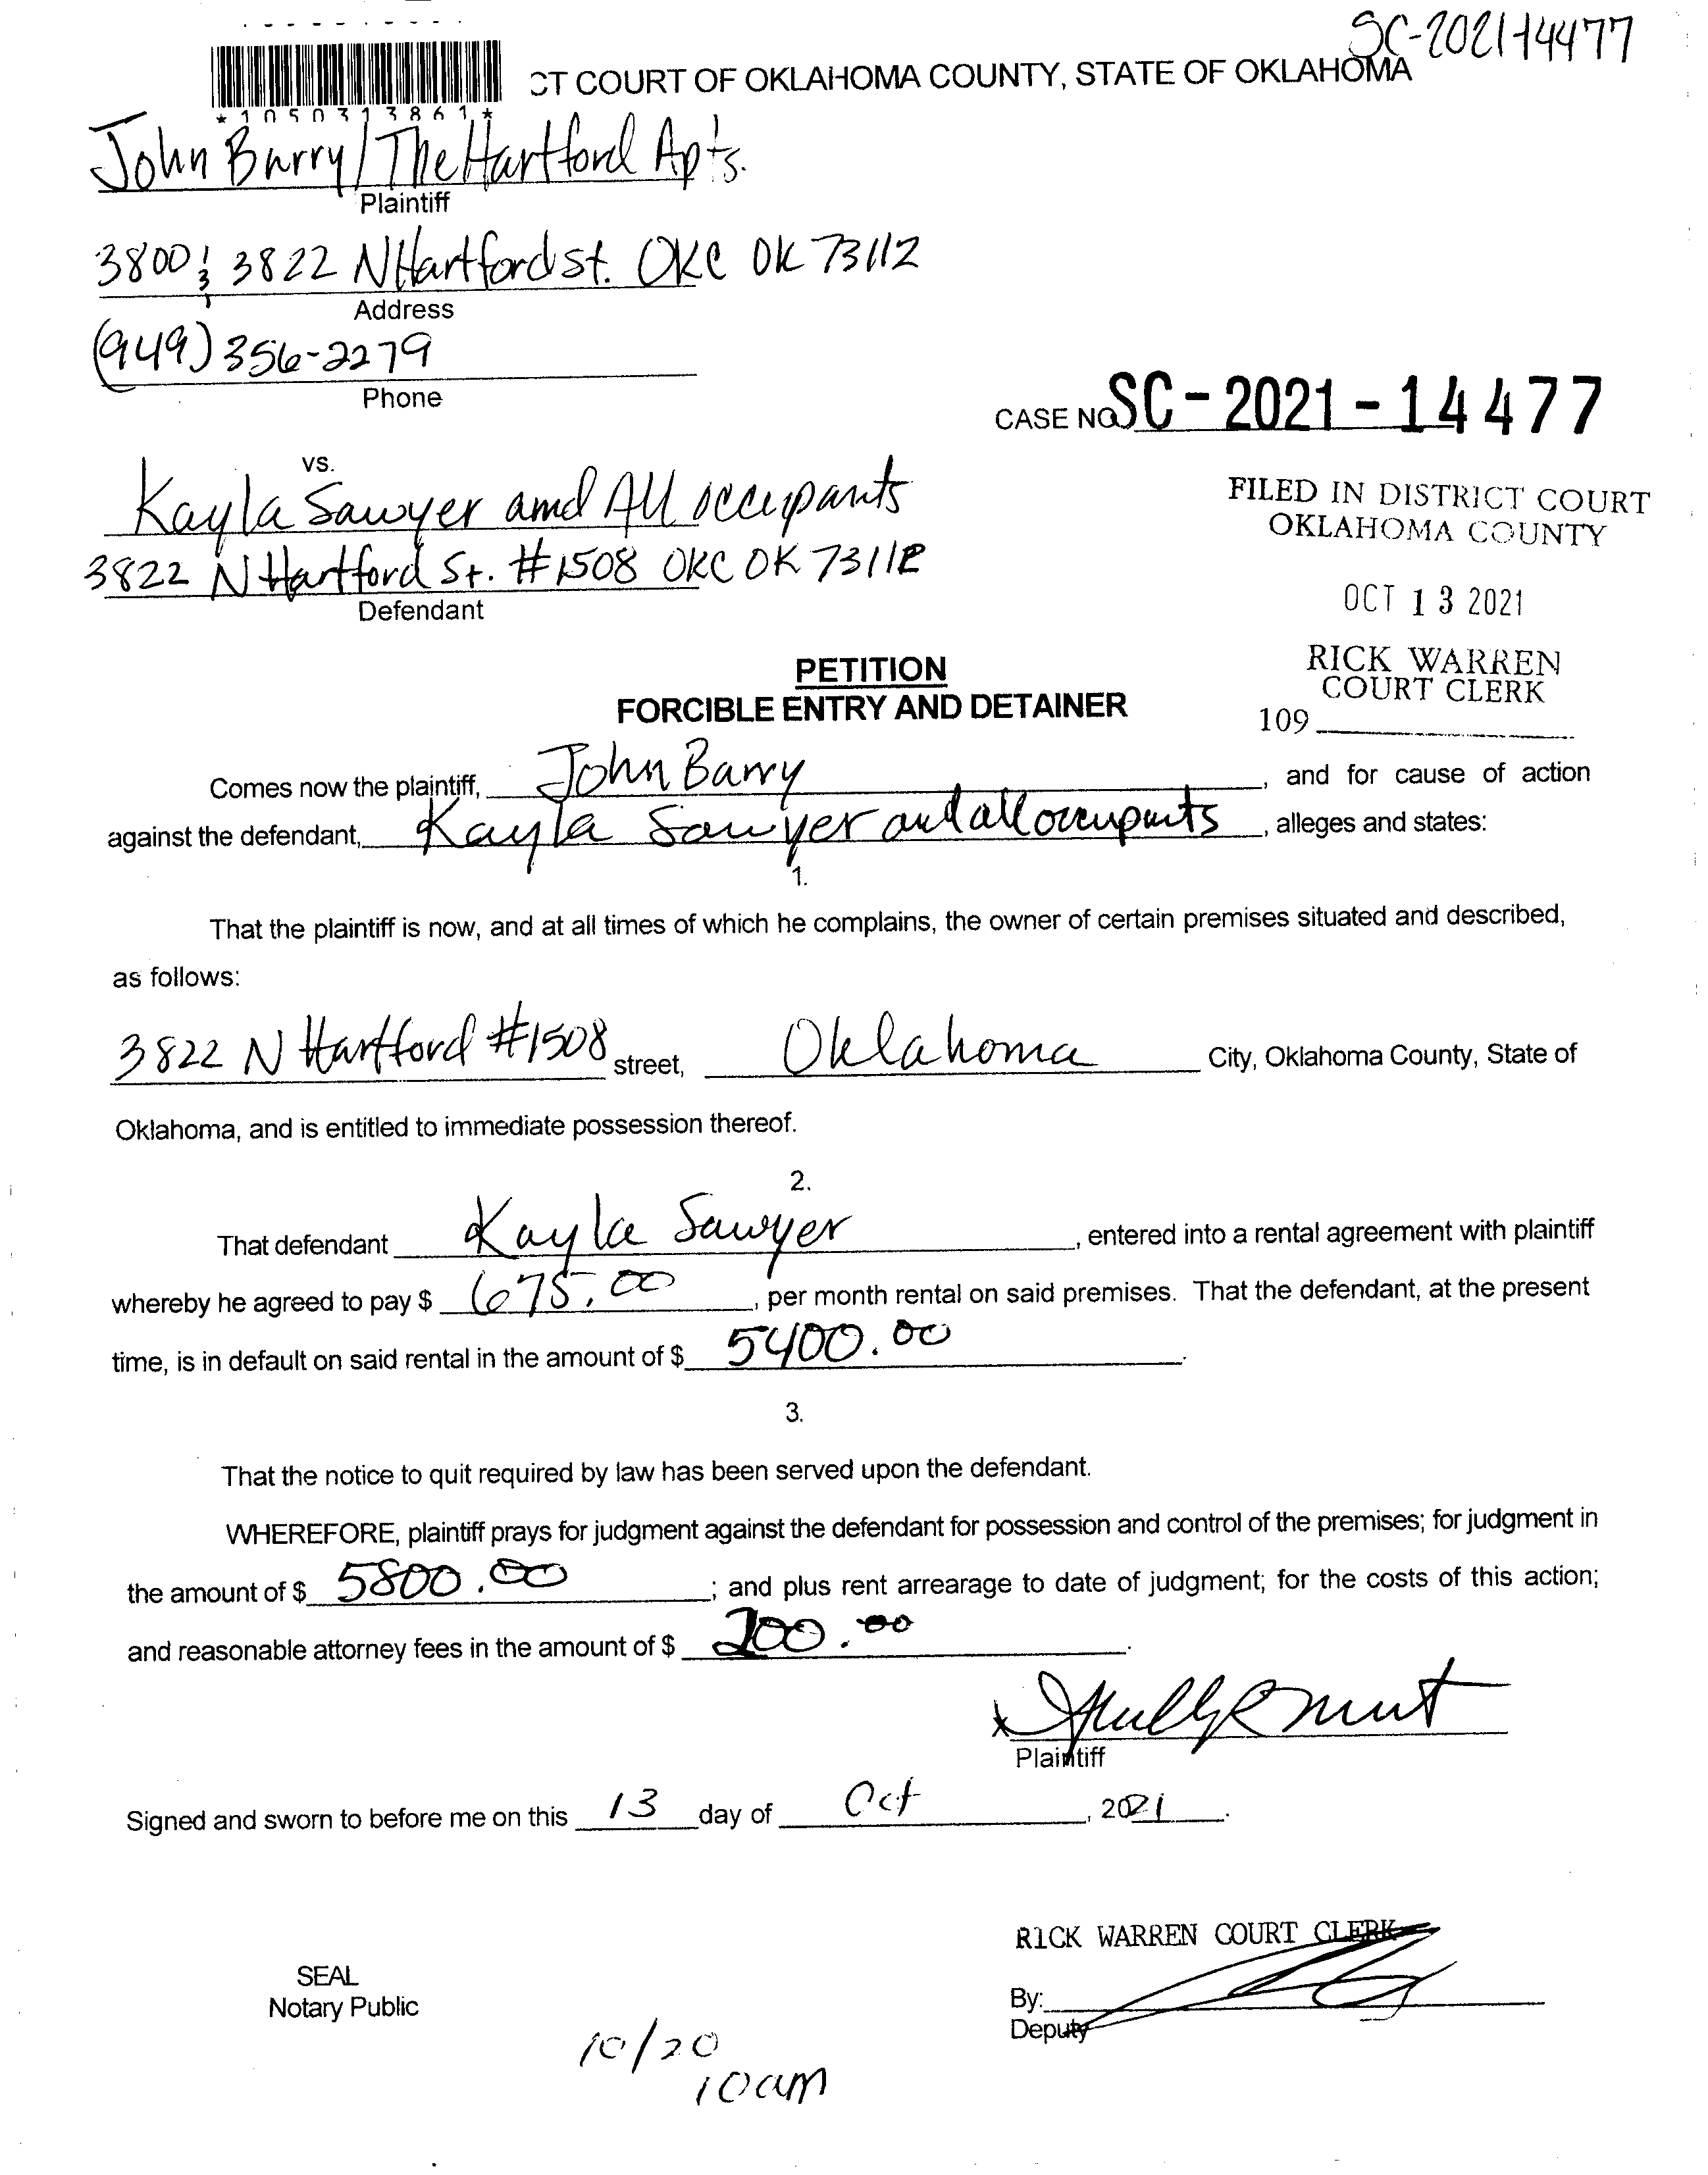 SC-2021-14477
CT COURT OF OKLAHOMA COUNTY, STATE OF OKLAHOMA
*1050313861*
John Barry/The Hartford Apt's.
Plaintiff
3800 & 3822 N Hartford st. OKC OK 73112
Address
(949) 356-2279
Phone
CASE NO. SC-2021-14477
vs.
Kayla Sawyer and All occupants
3822 N Hartford St. #1508 OKC OK 73112
Defendant
FILED IN DISTRICT COURT
OKLAHOMA COUNTY
OCT 13 2021
RICK WARREN
COURT CLERK
109
PETITION
FORCIBLE ENTRY AND DETAINER
Comes now the plaintiff, John Barry, and for cause of action
against the defendant, Kayla Sawyer and all occupants, alleges and states:
1.
That the plaintiff is now, and at all times of which he complains, the owner of certain premises situated and described,
as follows:
3822 N Hartford #1508 street, Oklahoma City, Oklahoma County, State of
Oklahoma, and is entitled to immediate possession thereof.
2.
That defendant Kayla Sawyer, entered into a rental agreement with plaintiff
whereby he agreed to pay $ 675.00, per month rental on said premises. That the defendant, at the present
time, is in default on said rental in the amount of $ 5400.00.
3.
That the notice to quit required by law has been served upon the defendant.
WHEREFORE, plaintiff prays for judgment against the defendant for possession and control of the premises; for judgment in
the amount of $ 5800.00; and plus rent arrearage to date of judgment; for the costs of this action;
and reasonable attorney fees in the amount of $ 200.00.
x
Plaintiff
Signed and sworn to before me on this 13 day of Oct, 2021.
RICK WARREN COURT CLERK
SEAL
Notary Public
By:
Deputy
10/20
10am